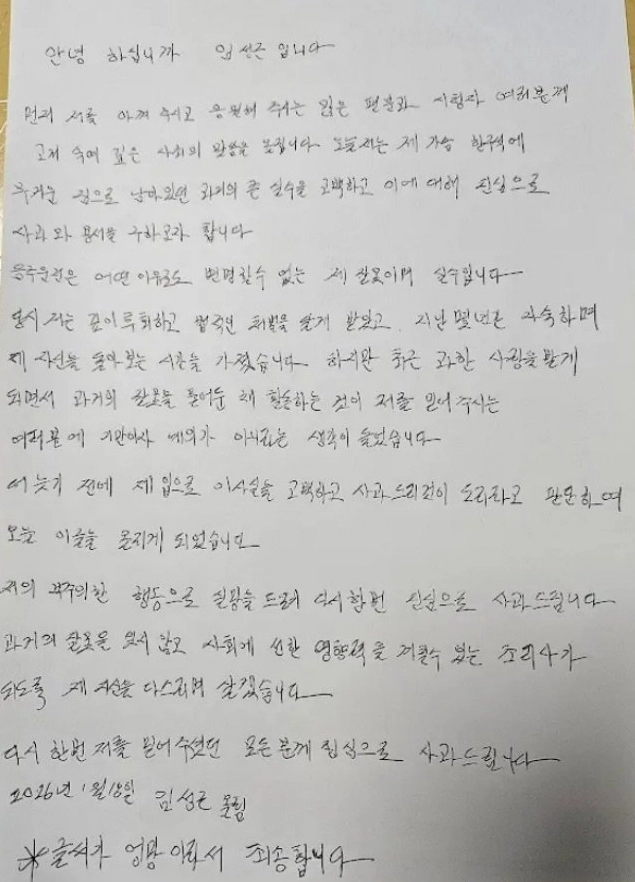 안녕 하십니까 임성근 입니다
먼저 저를 아껴 주시고 응원해 주시는 많은 팬분과 시청자 여러분께
고개 숙여 깊은 사죄의 말씀을 올립니다 오늘 저는 제 가슴 한구석에
무거운 짐으로 남아있던 과거의 큰 실수를 고백하고 이에 대해 진심으로
사과와 용서를 구하고자 합니다
음주운전은 어떤 이유로도 변명할수 없는 제 잘못이며 실수입니다
당시 저는 깊이 후회하고 법적인 처벌을 달게 받았고, 지난 몇년간 자숙하며
제 자신을 돌아보는 시간을 가졌습니다 하지만 최근 과한 사랑을 받게
되면서 과거의 잘못을 묻어둔 채 활동하는 것이 저를 믿어 주시는
여러분에 기만이자 예의가 아니라는 생각이 들었습니다
더 늦기 전에 제 입으로 이사실을 고백하고 사과 드리것이 도리라고 판단하여
오늘 이글을 올리게 되었습니다
저의 부주의한 행동으로 실망을 드려 다시한번 진심으로 사과드립니다
과거의 잘못을 잊지 않고 사회에 선한 영향력을 끼칠수 있는 조리사가
되도록 제 자신을 다스리며 살겠습니다
다시 한번 저를 믿어주셨던 모든분께 진심으로 사과드립니다
2026년 1월 18일 임성근 올림
※글씨가 엉망이라서 죄송합니다